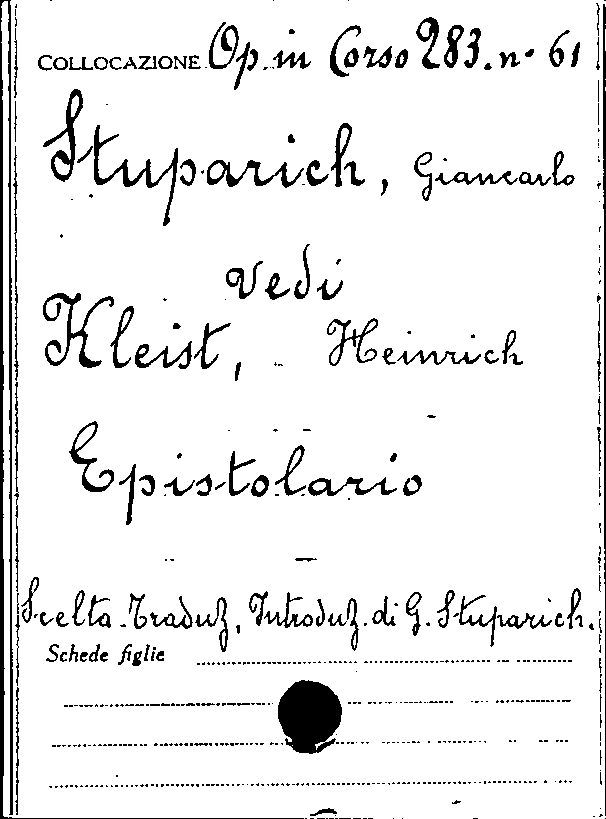 COLLOCAZIONE Op. in Corso 283. n. 61
Stuparich, Giancarlo
vedi
Kleist, Heinrich
Epistolario
Scelta. Traduz, Introduz. di G. Stuparich.
Schede figlie